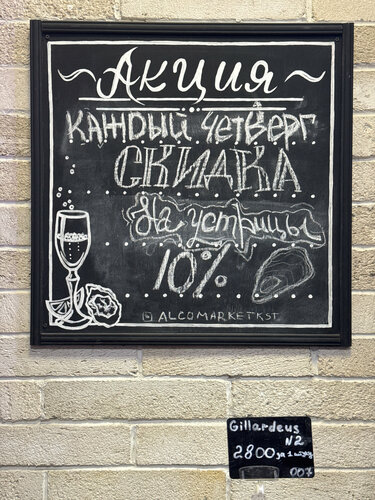 ~АКЦИЯ~
КАЖДЫЙ ЧЕТВЕРГ
СКИДКА
На устрицы
10%
ALCOMARKETKST
Gillardeus
N2
2800 за 1 штуку
007